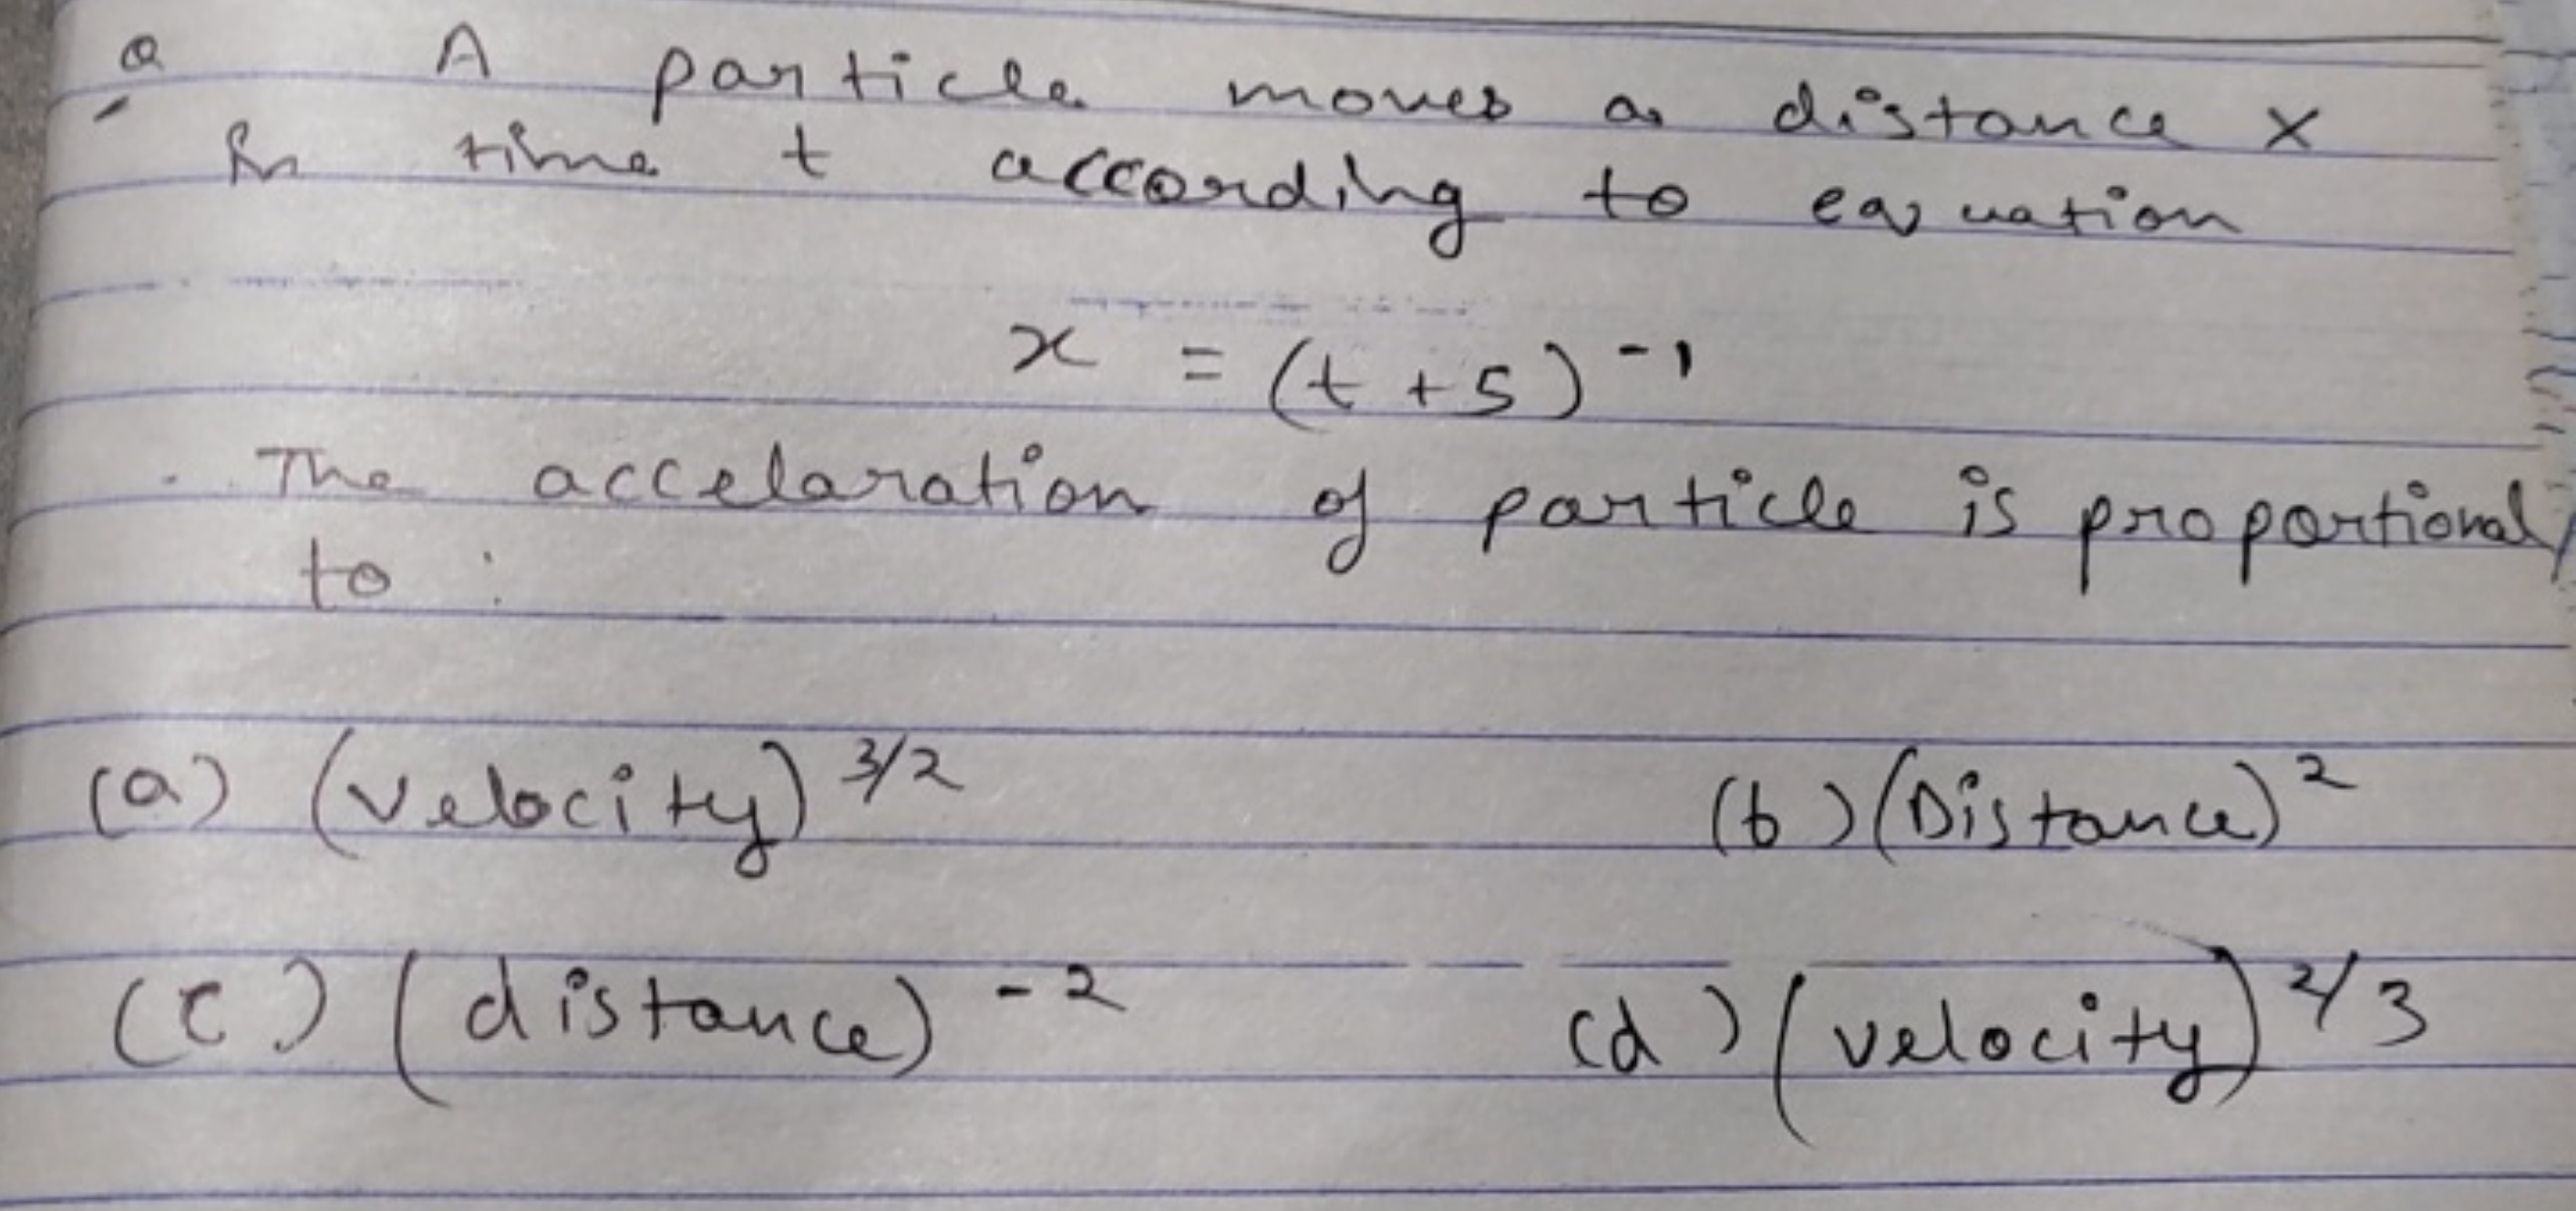 Q A particle moves a distance x
in time t according to equation
x = (t + 5)⁻¹
The accelaration of particle is proportional
to :
(a) (velocity)³/² (b) (Distance)²
(c) (distance)⁻² (d) (velocity)²/³